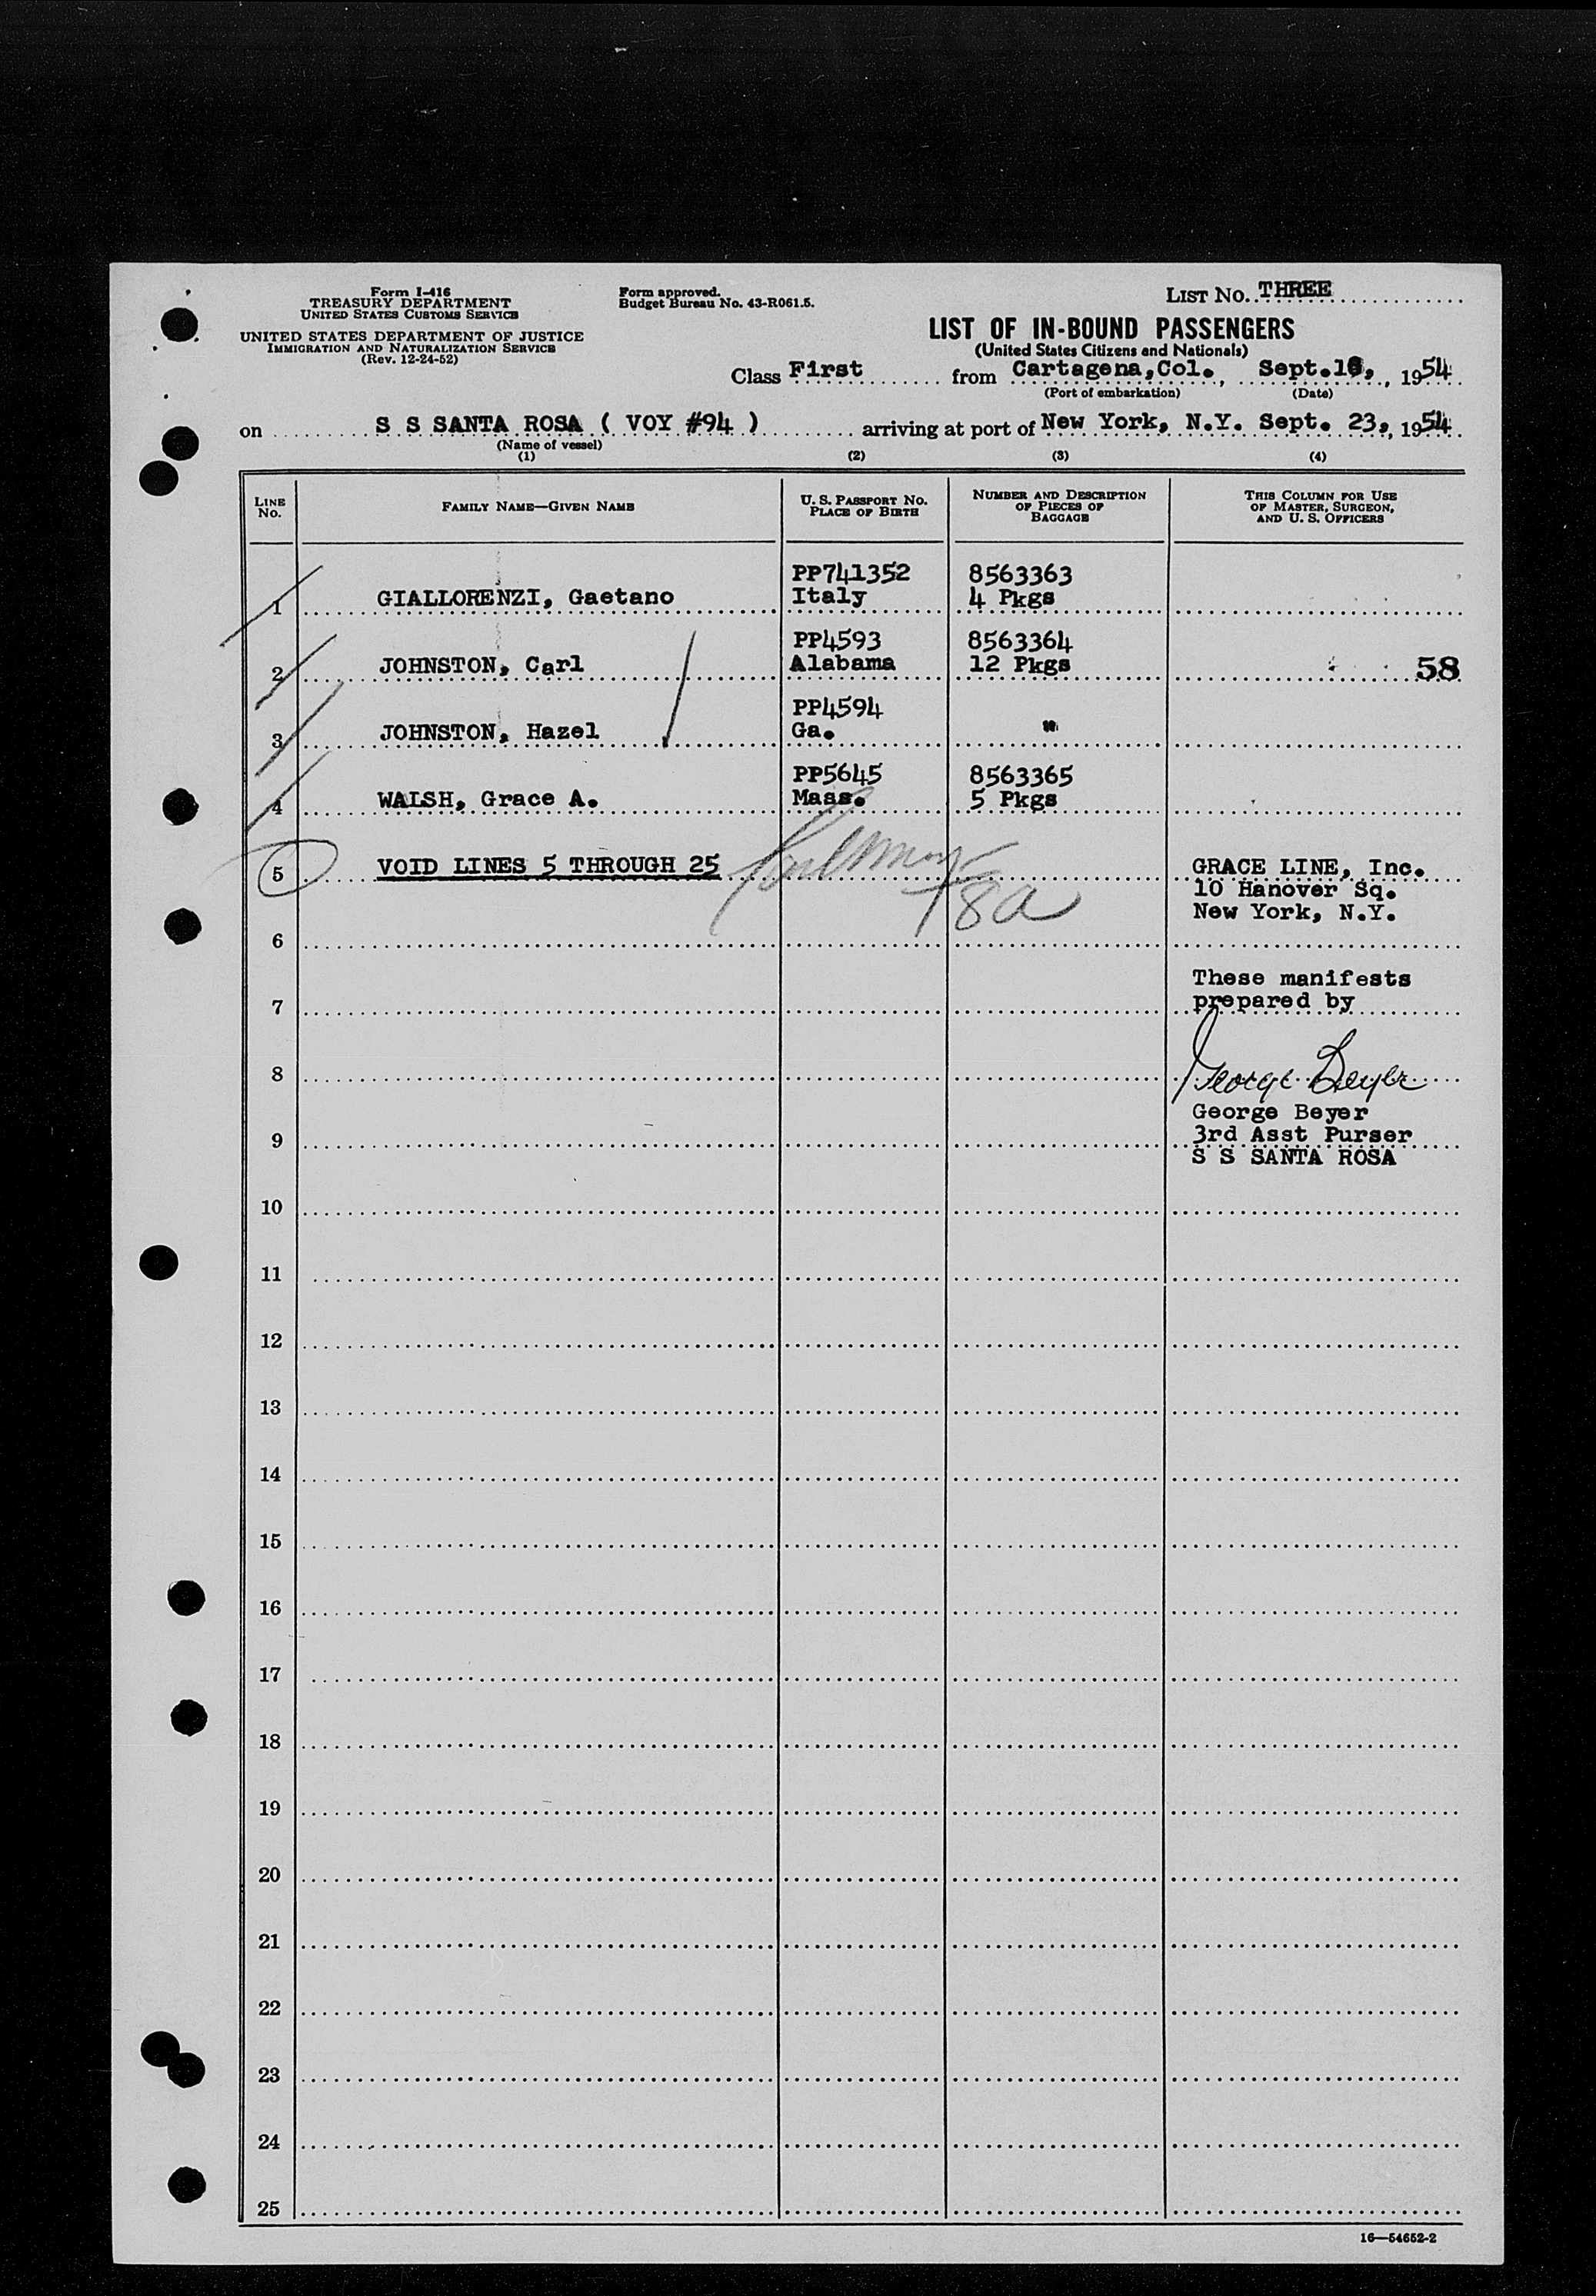 Form I-416
TREASURY DEPARTMENT
UNITED STATES CUSTOMS SERVICE
UNITED STATES DEPARTMENT OF JUSTICE
IMMIGRATION AND NATURALIZATION SERVICE
(Rev. 12-24-52)
Form approved.
Budget Bureau No. 43-R061.5.
LIST NO. THREE
LIST OF IN-BOUND PASSENGERS
(United States Citizens and Nationals)
Class First from Cartagena,Col., Sept.16, 1954
(Port of embarkation) (Date)
on S S SANTA ROSA ( VOY #94 ) arriving at port of New York, N.Y. Sept. 23, 1954
(Name of vessel)
(1) (2) (3) (4)
LINE NO. FAMILY NAME—GIVEN NAME U. S. PASSPORT NO. PLACE OF BIRTH NUMBER AND DESCRIPTION OF PIECES OF BAGGAGE THIS COLUMN FOR USE OF MASTER, SURGEON, AND U. S. OFFICERS
PP741352 8563363
1 GIALLORENZI, Gaetano Italy 4 Pkgs
PP4593 8563364
2 JOHNSTON, Carl Alabama 12 Pkgs 58
PP4594
3 JOHNSTON, Hazel Ga. "
PP5645 8563365
4 WALSH, Grace A. Mass. 5 Pkgs
5 VOID LINES 5 THROUGH 25 GRACE LINE, Inc.
10 Hanover Sq.
New York, N.Y.
6
These manifests
7 prepared by
8 George Beyer
George Beyer
9 3rd Asst Purser
S S SANTA ROSA
10
11
12
13
14
15
16
17
18
19
20
21
22
23
24
25
16—54652-2